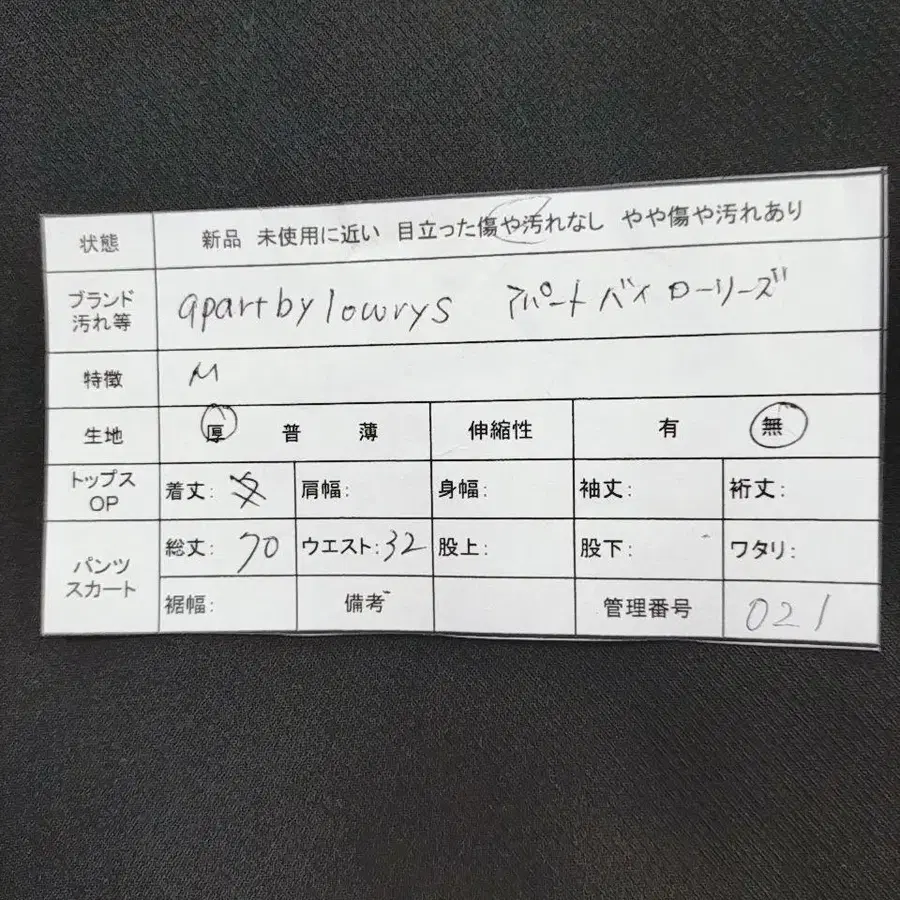 状態 新品 未使用に近い 目立った傷や汚れなし やや傷や汚れあり
ブランド
汚れ等 apart by lowrys アパートバイローリーズ
特徴 M
生地 厚 普 薄 伸縮性 有 無
トップス
OP 着丈: 肩幅: 身幅: 袖丈: 裄丈:
パンツ
スカート 総丈: 70 ウエスト: 32 股上: 股下: ワタリ:
裾幅: 備考 管理番号 021